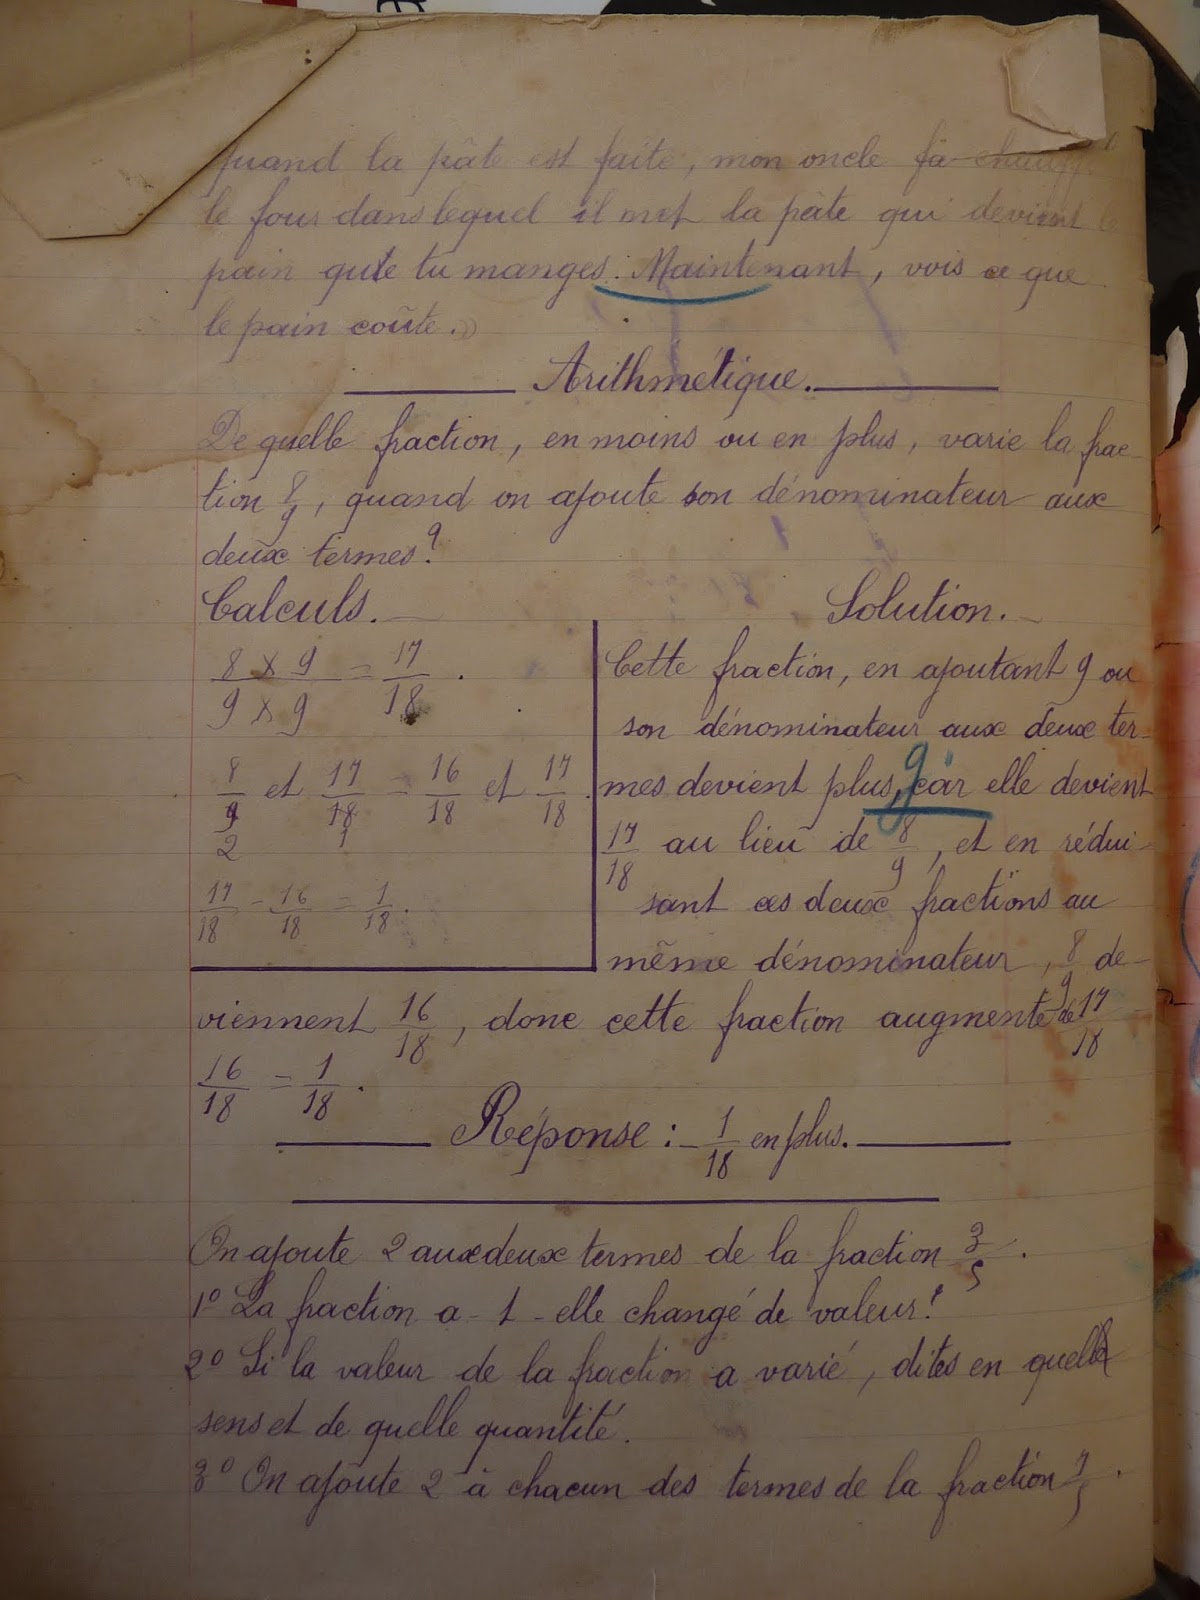 quand la pâte est faite, mon oncle fa chauff
le four dans lequel il met la pâte qui devient le
pain que tu manges. Maintenant, vois ce que
le pain coûte.»
Arithmétique.
De quelle fraction, en moins ou en plus, varie la frac-
tion 8/9, quand on ajoute son dénominateur aux
deux termes?
Calculs.
8 x 9 / 9 x 9 = 17/18.
8/9 et 17/18 = 16/18 et 17/18.
2 1
17/18 - 16/18 = 1/18.
Solution.
Cette fraction, en ajoutant 9 ou
son dénominateur aux deux ter-
mes devient plus, car elle devient
17/18 au lieu de 8/9, et en rédui-
sant ces deux fractions au
même dénominateur, 8/9 de-
viennent 16/18, donc cette fraction augmente de 17/18
16/18 = 1/18.
Réponse : 1/18 en plus.
On ajoute 2 aux deux termes de la fraction 3/5.
1º La fraction a-t-elle changé de valeur?
2º Si la valeur de la fraction a varié, dites en quel
sens et de quelle quantité.
3º On ajoute 2 à chacun des termes de la fraction 7/5.